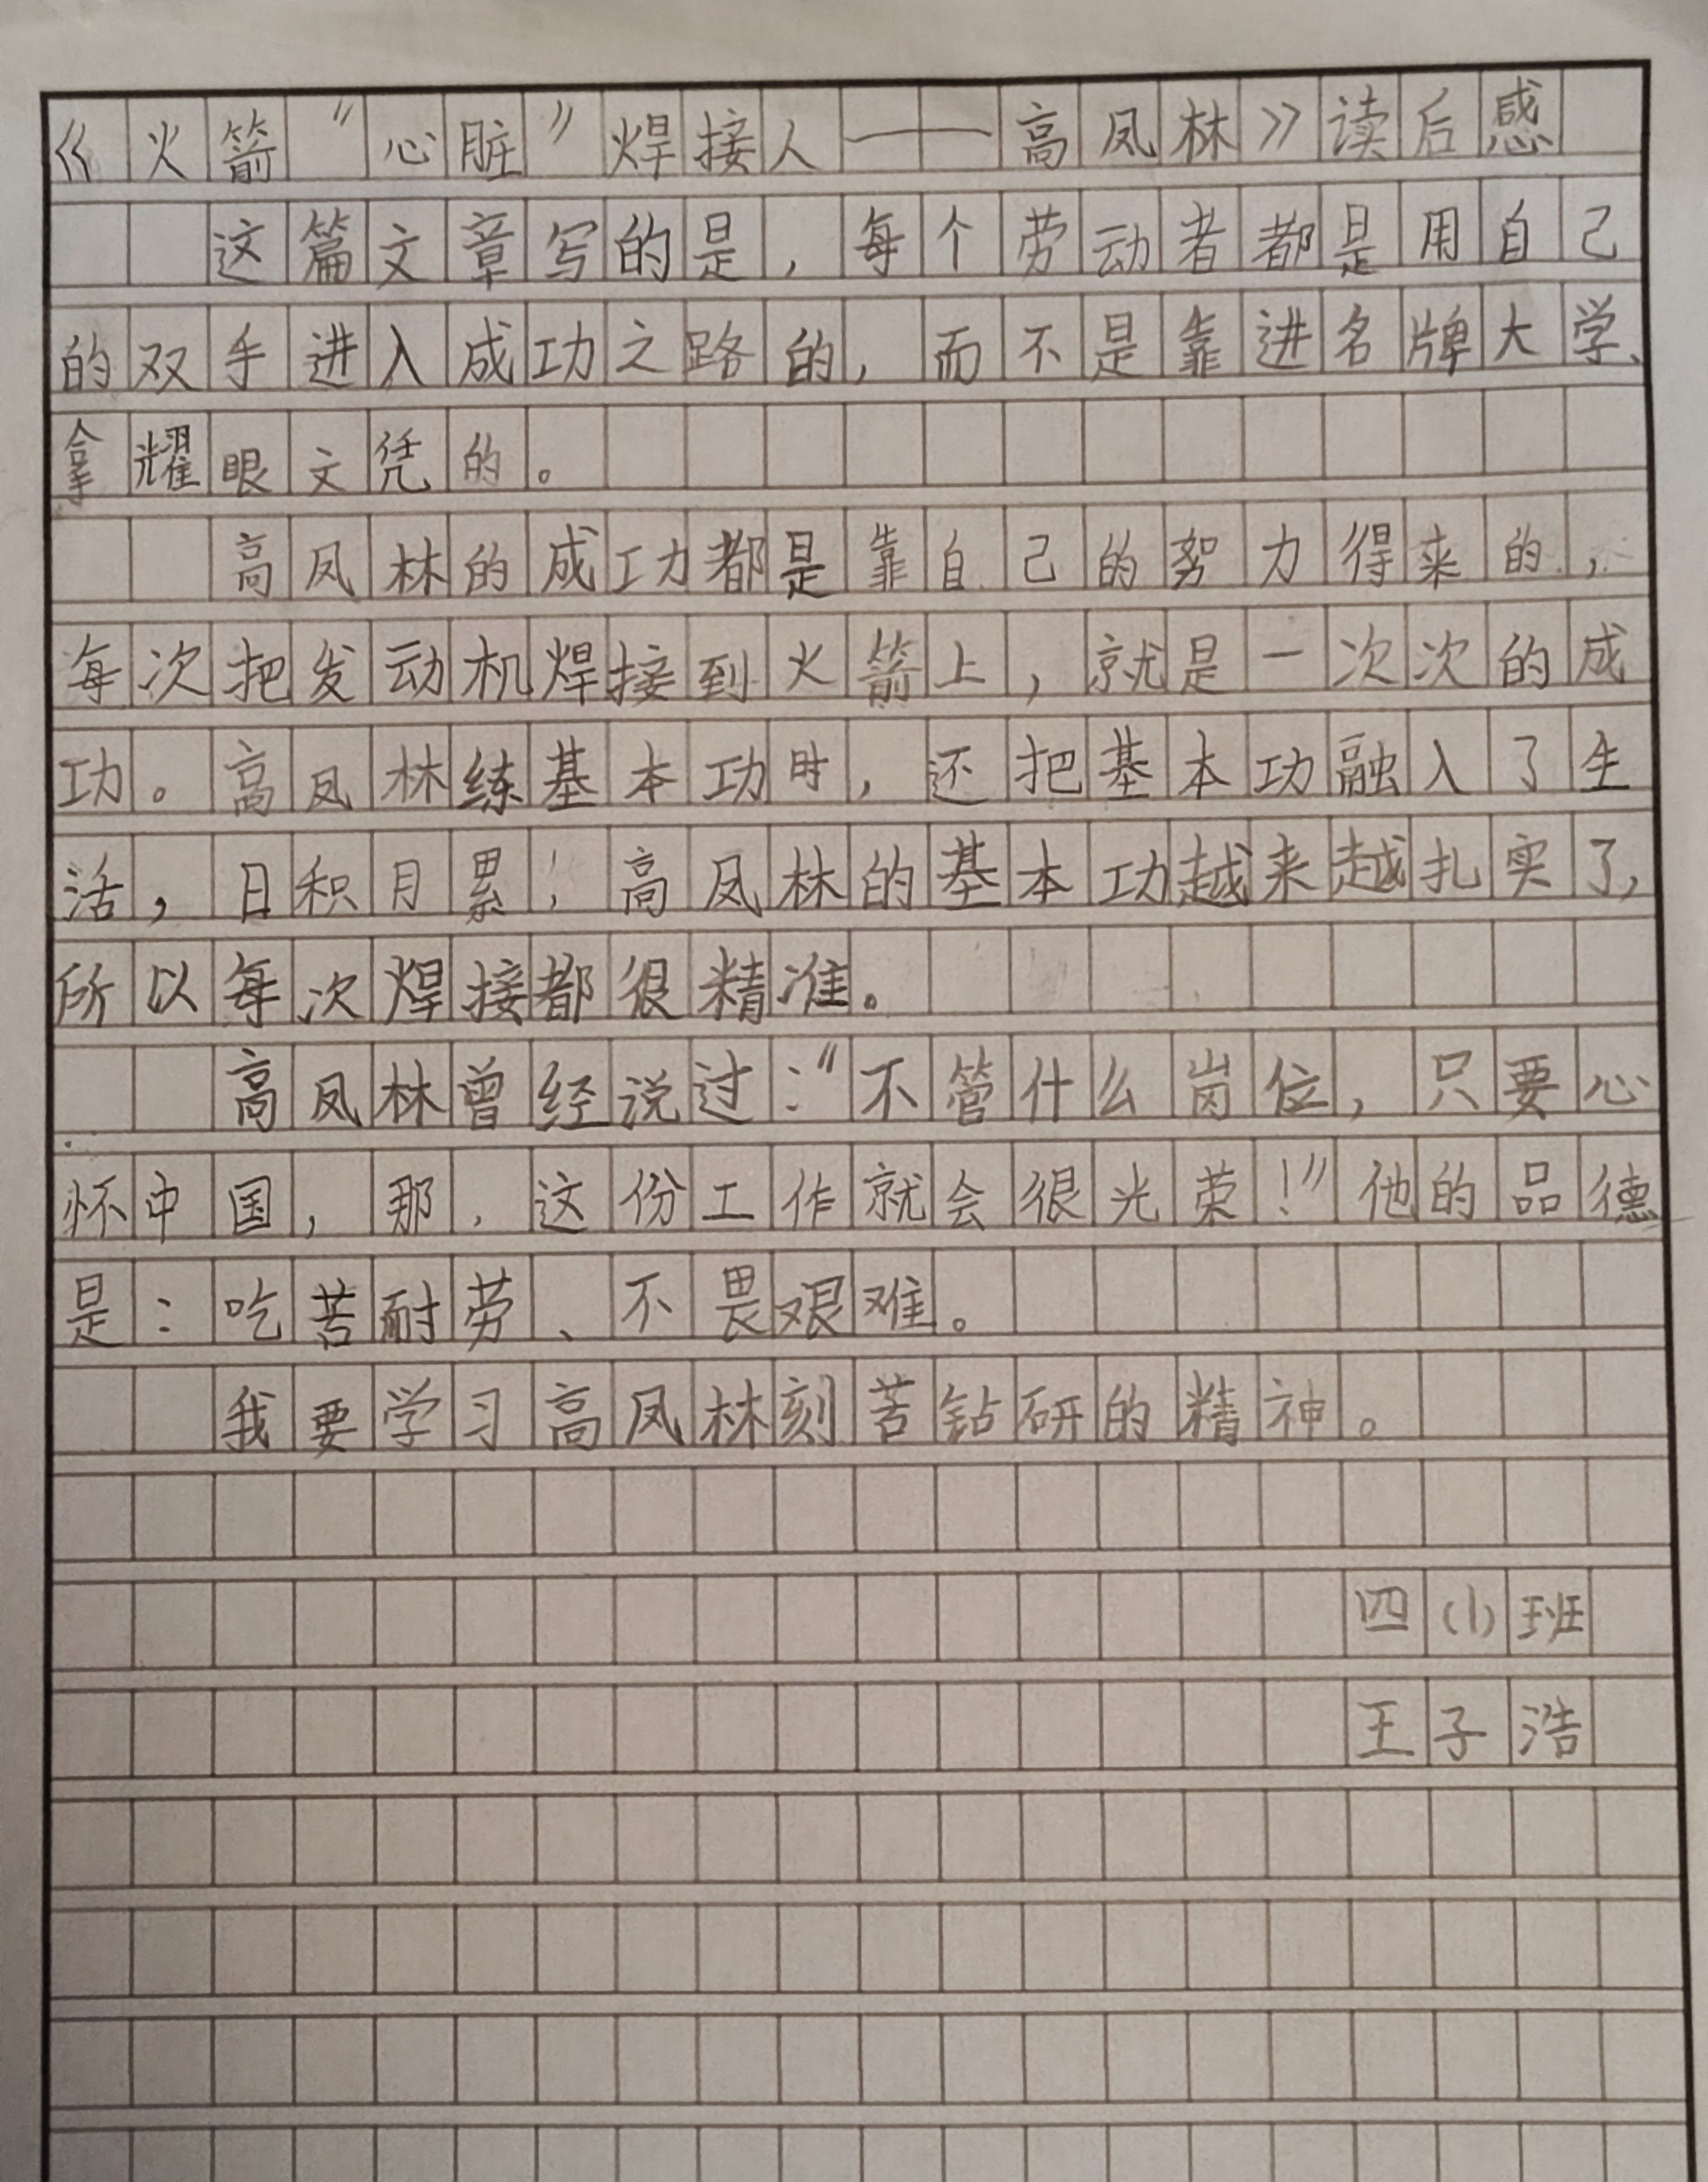 《火箭“心脏”焊接人——高凤林》读后感
这篇文章写的是，每个劳动者都是用自己
的双手进入成功之路的，而不是靠进名牌大学、
拿耀眼文凭的。
高凤林的成功都是靠自己的努力得来的，
每次把发动机焊接到火箭上，就是一次次的成
功。高凤林练基本功时，还把基本功融入了生
活，日积月累，高凤林的基本功越来越扎实了，
所以每次焊接都很精准。
高凤林曾经说过：“不管什么岗位，只要心
怀中国，那，这份工作就会很光荣！”他的品德
是：吃苦耐劳、不畏艰难。
我要学习高凤林刻苦钻研的精神。
四（1）班
王子浩